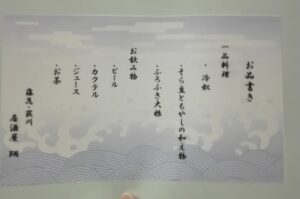 お品書き
一品料理
・冷奴
・そら豆ともやしの和え物
・ふろふき大根
お飲み物
・ビール
・カクテル
・ジュース
・お茶
居酒屋 翔